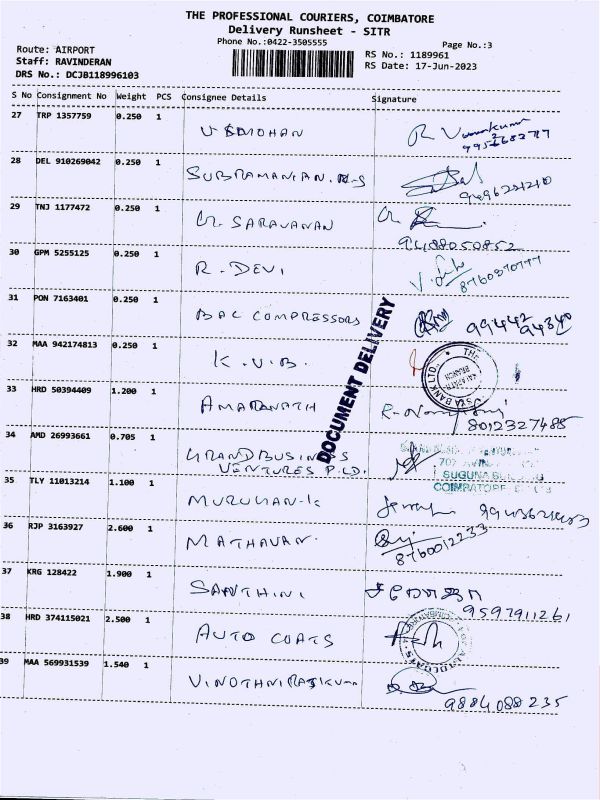 THE PROFESSIONAL COURIERS, COIMBATORE
Delivery Runsheet - SITR
Phone No.:0422-3505555
Page No.:3
Route: AIRPORT
Staff: RAVINDERAN
DRS No.: DCJB118996103
RS No.: 1189961
RS Date: 17-Jun-2023
S No Consignment No Weight PCS Consignee Details Signature
27 TRP 1357759 0.250 1 V S MOHAN
28 DEL 910269042 0.250 1 SUBRAMANIAN. 9496221210
29 TNJ 1177472 0.250 1 SARAVANAN
9488050852
30 GPM 5255125 0.250 1 R. DEVI 8760870777
31 PON 7163401 0.250 1 BAC COMPRESSORS 99442 94340
32 MAA 942174813 0.250 1 K. V. B.
DOCUMENT DELIVERY
33 HRD 50394409 1.200 1 AMARANATH
8012327485
34 AMD 26993661 0.705 1 GRAND BUSINESS
VENTURES P.LD.
SUGUNA
COIMBATORE
35 TLY 11013214 1.100 1 MURUGAN-K
36 RJP 3163927 2.600 1 MATHAVAN. 8760012233
37 KRG 128422 1.900 1 SANTHINI
9597911261
38 HRD 374115021 2.500 1 AUTO COATS
39 MAA 569931539 1.540 1 VINOTHNI RAJKUMAR
9884088235